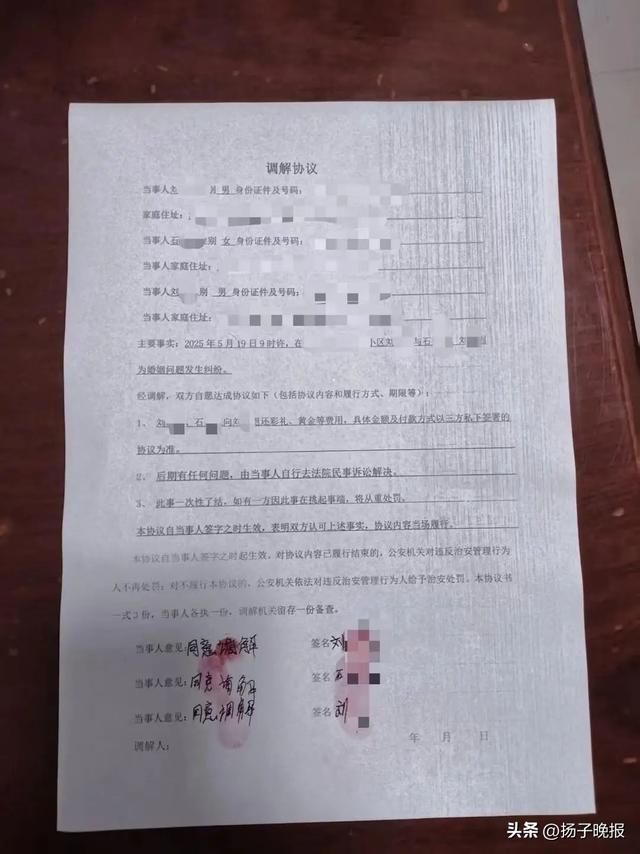 调解协议
当事人刘 男 身份证件及号码：
家庭住址：
当事人石 别 女 身份证件及号码：
当事人家庭住址：
当事人刘 别 男 身份证件及号码：
当事人家庭住址：
主要事实：2025年5月19日9时许，在 小区刘 与石 刘
为婚姻问题发生纠纷。
经调解，双方自愿达成协议如下（包括协议内容和履行方式、期限等）：
1、 刘 、石 向刘 还彩礼、黄金等费用，具体金额及付款方式以三方私下签署的
协议为准。
2、 后期有任何问题，由当事人自行去法院民事诉讼解决。
3、 此事一次性了结，如有一方因此事在挑起事端，将从重处罚。
本协议自当事人签字之时生效，表明双方认可上述事实，协议内容当场履行。
本协议自当事人签字之时起生效。对协议内容已履行结束的，公安机关对违反治安管理行为
人不再处罚；对不履行本协议的，公安机关依法对违反治安管理行为人给予治安处罚。本协议书
一式3份，当事人各执一份，调解机关留存一份备查。
当事人意见：同意调解 签名 刘
当事人意见：同意调解 签名
当事人意见：同意调解 签名 刘
调解人： 年 月 日
头条 @扬子晚报